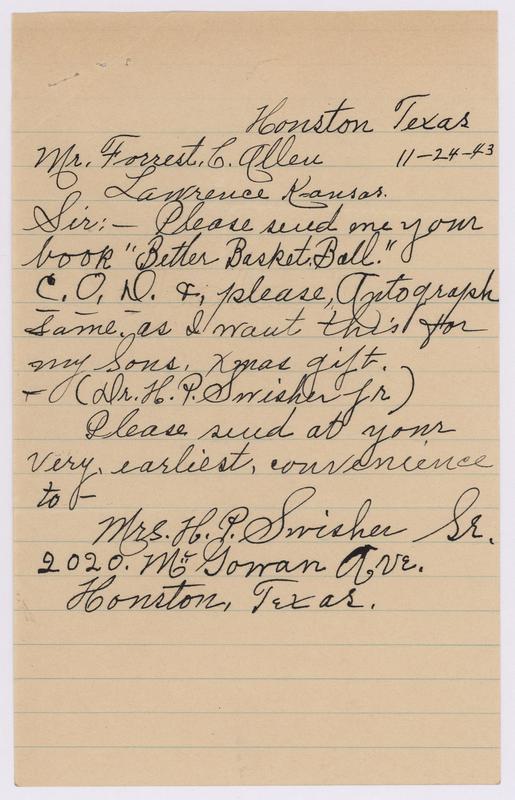 Houston Texas
Mr. Forrest, C. Allen 11-24-43
Lawrence Kansas.
Sir:- Please send me your
book "Better Basket, Ball."
C. O, D. &, please, Autograph
same, as I want this for
my Sons, Xmas gift.
- (Dr. H. P. Swisher Jr)
Please send at your
very, earliest, convenience
to -
Mrs. H. P. Swisher Sr.
2020. Mc Gowan Ave.
Houston, Texas.